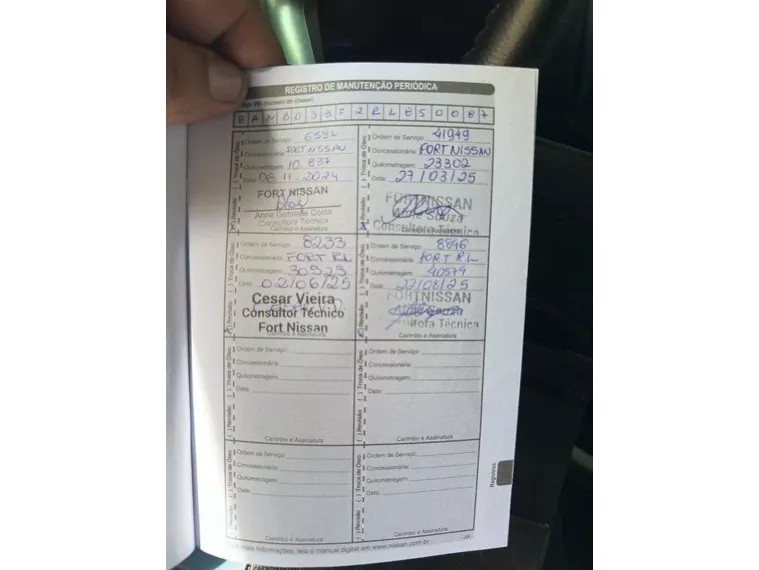 REGISTRO DE MANUTENÇÃO PERIÓDICA
(número do chassi)
8 A N B D 3 3 F 2 R L 8 5 0 0 8 7
( ) Troca de Óleo
Ordem de Serviço: 6592
Concessionária: FORT NISSAN
Quilometragem: 10.897
Data: 06.11.2024
FORT NISSAN
Anne Gabriele Costa
Consultora Técnica
(X) Revisão
Carimbo e Assinatura
( ) Troca de Óleo
Ordem de Serviço: 41949
Concessionária: FORT NISSAN
Quilometragem: 23302
Data: 27/03/25
FORTNISSAN
Souza
Consultora Técnica
(X) Revisão
( ) Troca de Óleo
Ordem de Serviço: 8233
Concessionária: FORT R.L
Quilometragem: 30929
Data: 02/06/25
Cesar Vieira
Consultor Técnico
Fort Nissan
(X) Revisão
Carimbo e Assinatura
( ) Troca de Óleo
Ordem de Serviço: 8846
Concessionária: FORT R.L
Quilometragem: 40979
Data: 22/08/25
FORTNISSAN
Souza
Técnica
(X) Revisão
Carimbo e Assinatura
( ) Troca de Óleo
Ordem de Serviço:
Concessionária:
Quilometragem:
Data:
( ) Revisão
Carimbo e Assinatura
( ) Troca de Óleo
Ordem de Serviço:
Concessionária:
Quilometragem:
Data:
( ) Revisão
Carimbo e Assinatura
( ) Troca de Óleo
Ordem de Serviço:
Concessionária:
Quilometragem:
Data:
( ) Revisão
Carimbo e Assinatura
( ) Troca de Óleo
Ordem de Serviço:
Concessionária:
Quilometragem:
Data:
( ) Revisão
Carimbo e Assinatura
Registros
mais informações, leia o manual digital em www.nissan.com.br